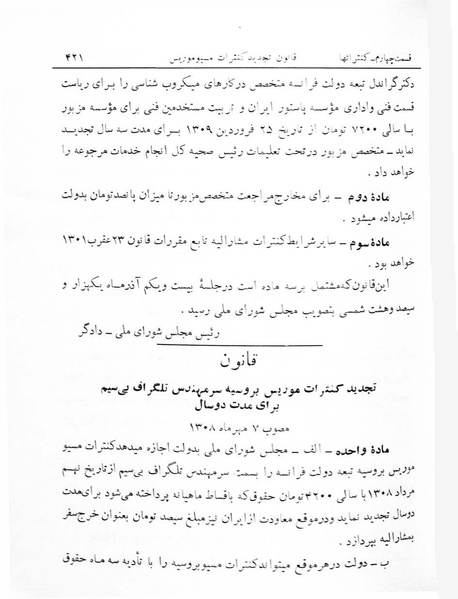 قسمت چهارم ـ کنتراتها قانون تجدید کنترات مسیو موریس ۴۲۱
دکتر گراندل تبعه دولت فرانسه متخصص در کارهای میکروب شناسی را برای ریاست
قسمت فنی واداری مؤسسه پاستور ایران و تربیت مستخدمین فنی برای مؤسسه مزبور
با سالی ۷۲۰۰ تومان از تاریخ ۲۵ فروردین ۱۳۰۹ برای مدت سه سال تجدید
نماید ـ متخصص مزبور در تحت تعلیمات رئیس صحیه کل انجام خدمات مرجوعه را
خواهد داد .
مادۀ دوم ـ برای مخارج مراجعت متخصص مزبور تا میزان پانصد تومان بدولت
اعتبار داده میشود .
مادۀ سوم ـ سایر شرایط کنترات مشارالیه تابع مقررات قانون ۲۳ عقرب ۱۳۰۱
خواهد بود .
این قانون که مشتمل بر سه ماده است در جلسۀ بیست ویکم آذرماه یکهزار و
سیصد وهشت شمسی بتصویب مجلس شورای ملی رسید .
رئیس مجلس شورای ملی ـ دادگر
قانون
تجدید کنترات موریس بروسیه سرمهندس تلگراف بی‌سیم
برای مدت دو سال
مصوب ۷ مهر ماه ۱۳۰۸
مادۀ واحده ـ الف ـ مجلس شورای ملی بدولت اجازه میدهد کنترات مسیو
موریس بروسیه تبعه دولت فرانسه را بسمت سرمهندس تلگراف بی‌سیم از تاریخ نهم
مرداد ۱۳۰۸ با سالی ۴۲۰۰ تومان حقوق که باقساط ماهیانه پرداخته می‌شود برای مدت
دو سال تجدید نماید و در موقع معاودت از ایران نیز مبلغ سیصد تومان بعنوان خرج سفر
بمشارالیه بپردازد .
ب ـ دولت در هر موقع میتواند کنترات مسیو بروسیه را با تأدیه سه ماه حقوق